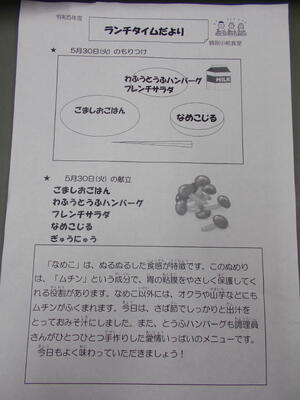 令和5年度
ランチタイムだより
小給食室
★ 5月30日(火) のもりつけ
わふうとうふハンバーグ
フレンチサラダ
MILK
ごましおごはん
なめこじる
★ 5月30日(火) の献立
ごましおごはん
わふうとうふハンバーグ
フレンチサラダ
なめこじる
ぎゅうにゅう
「なめこ」は、ぬるぬるした食感が特徴です。このぬめり
は、「ムチン」という成分で、胃の粘膜をやさしく保護してく
れる役割があります。なめこ以外には、オクラや山芋などにも
ムチンがふくまれます。今日は、さば節でしっかりと出汁を
とっておみそ汁にしました。また、とうふハンバーグも調理員
さんがひとつひとつ手作りした愛情いっぱいのメニューです。
今日もよく味わっていただきましょう！